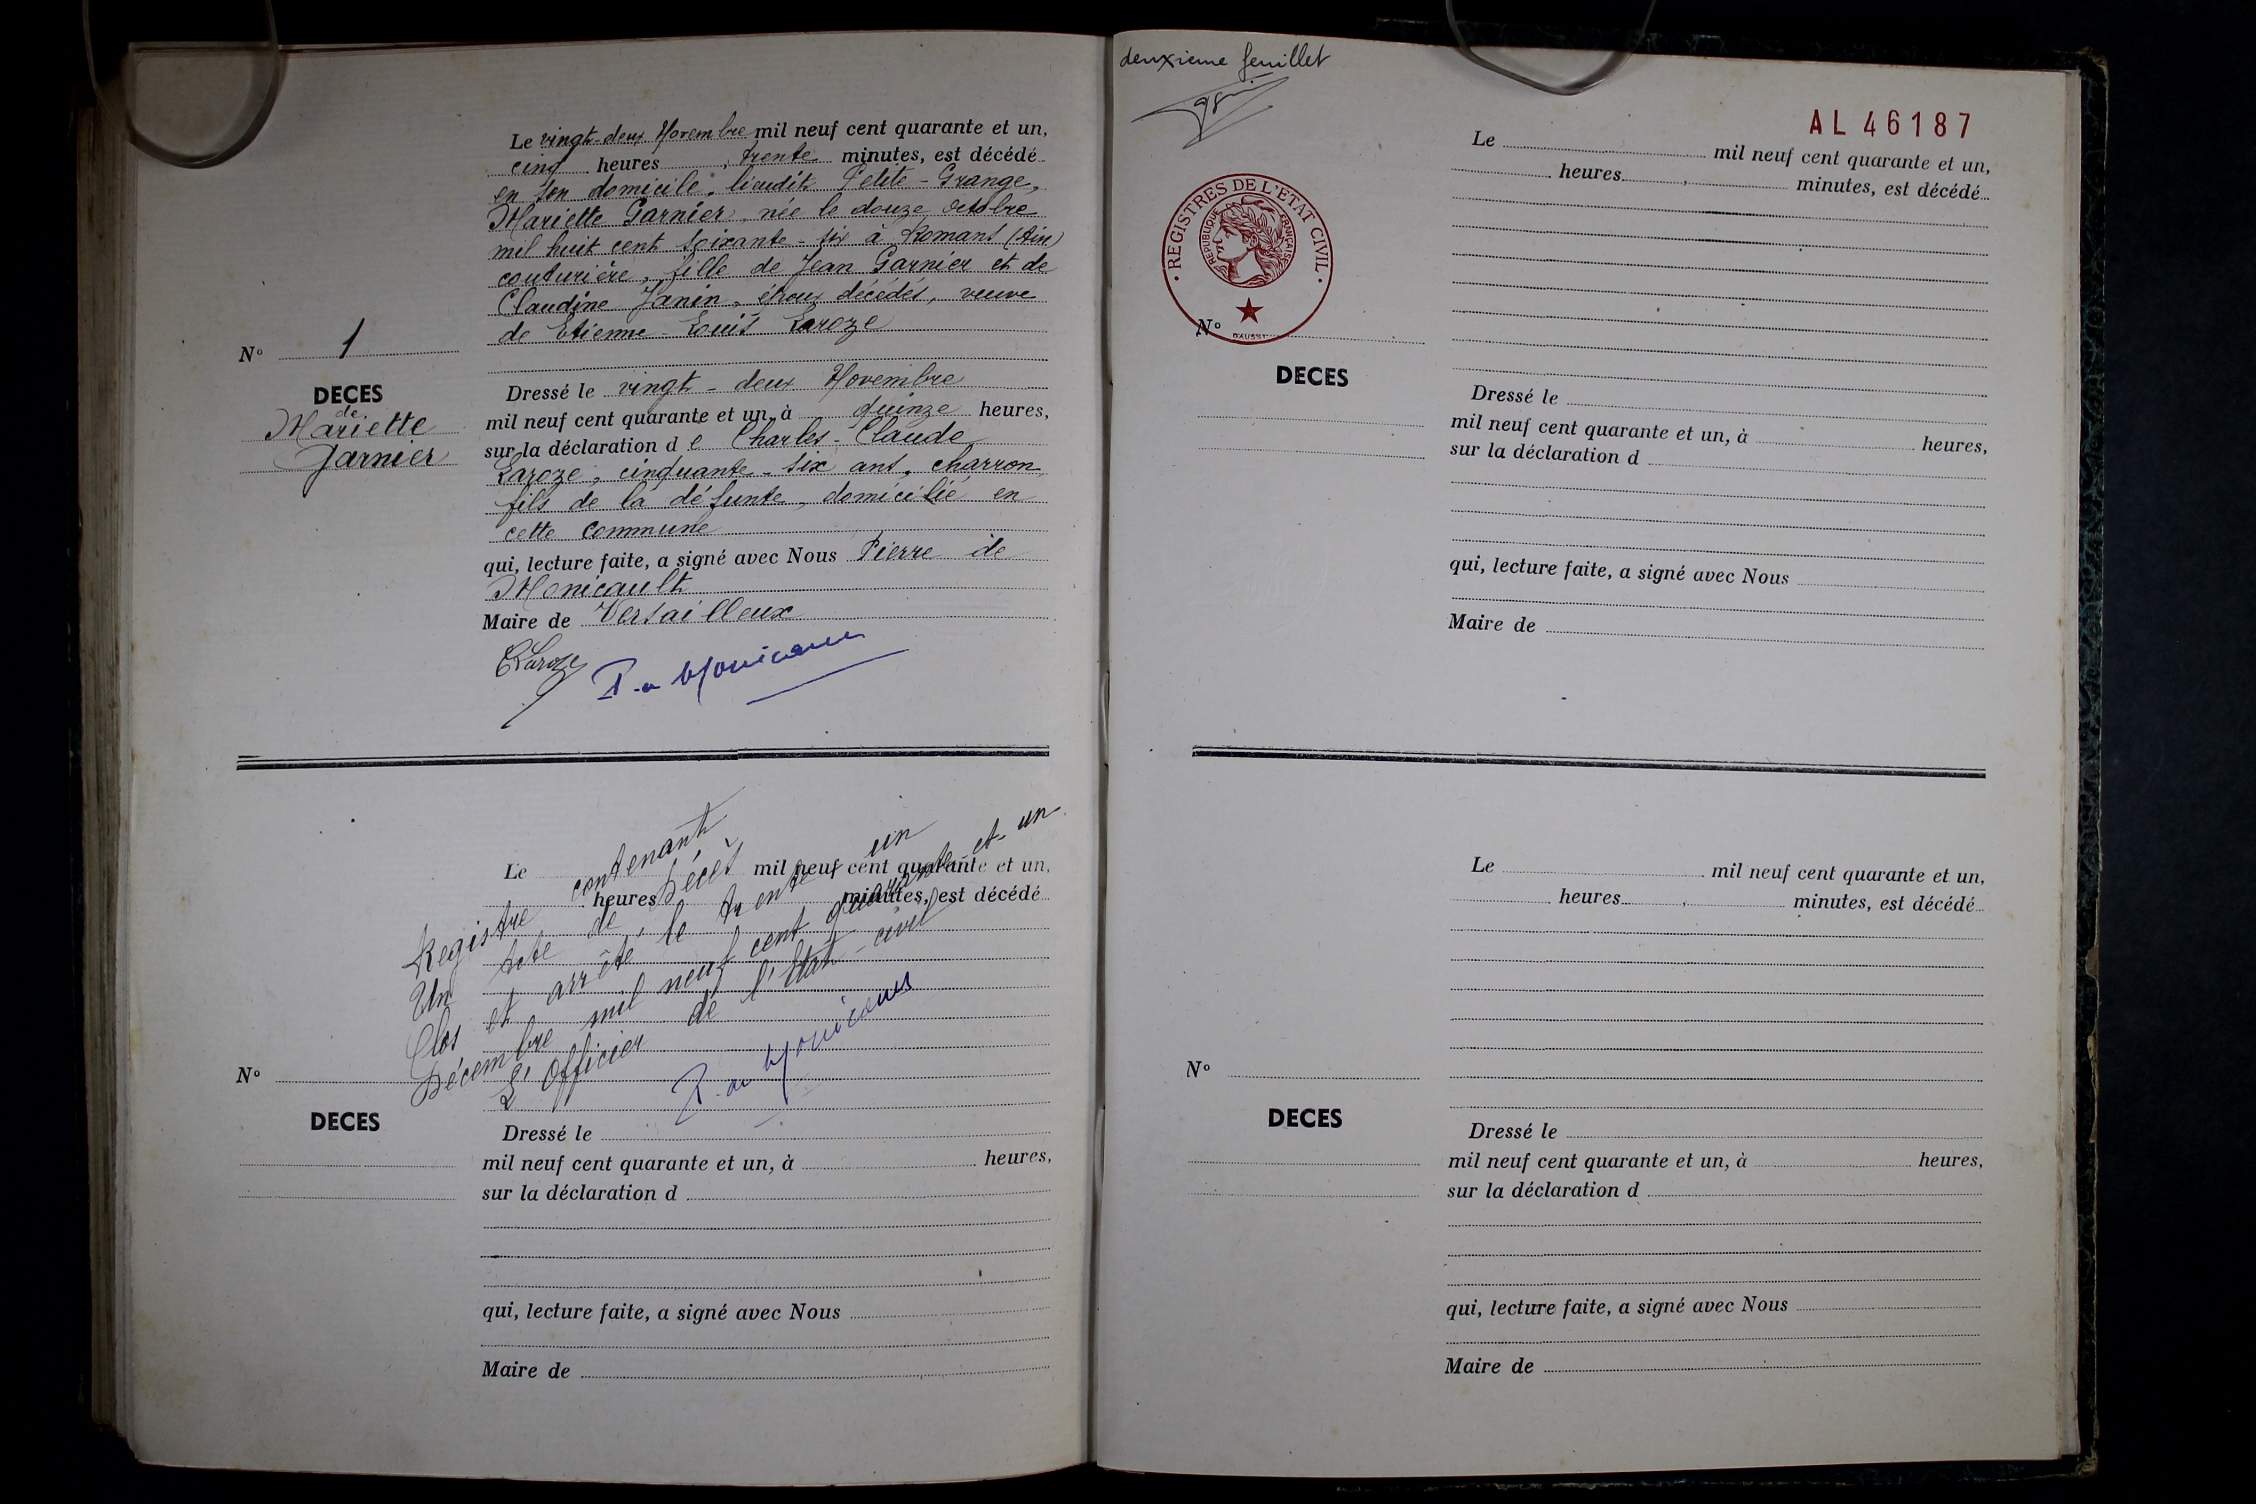 Le vingt-deux Novembre mil neuf cent quarante et un,
cinq heures, trente minutes, est décédé
en son domicile, lieudit Petite-Grange,
Mariette Garnier, née le douze octobre
mil huit cent soixante-six à Romans (Ain)
couturière, fille de Jean Garnier et de
Claudine Janin, époux décédés, veuve
de Etienne-Louis Laroze
N° 1
DECES
de
Mariette
Garnier
Dressé le vingt-deux Novembre
mil neuf cent quarante et un, à quinze heures,
sur la déclaration d e Charles-Claude
Laroze, cinquante-six ans, charron,
fils de la défunte, domicilié en
cette commune
qui, lecture faite, a signé avec Nous Pierre de
Monicault
Maire de Versailleux
CLaroze
P. de Monicault
Le mil neuf cent quarante et un,
heures minutes, est décédé
Registre contenant
Un Acte de Décès
Clos et arrêté, le trente un
Décembre mil neuf cent quarante et un
L'Officier de l'Etat-civil
P. de Monicault
N°
DECES
Dressé le
mil neuf cent quarante et un, à heures,
sur la déclaration d
qui, lecture faite, a signé avec Nous
Maire de
deuxieme feuillet
AL 46187
REGISTRES DE L'ETAT CIVIL
REPUBLIQUE FRANÇAISE
N°
DECES
Le mil neuf cent quarante et un,
heures, minutes, est décédé
Dressé le
mil neuf cent quarante et un, à heures,
sur la déclaration d
qui, lecture faite, a signé avec Nous
Maire de
Le mil neuf cent quarante et un,
heures, minutes, est décédé
N°
DECES
Dressé le
mil neuf cent quarante et un, à heures,
sur la déclaration d
qui, lecture faite, a signé avec Nous
Maire de